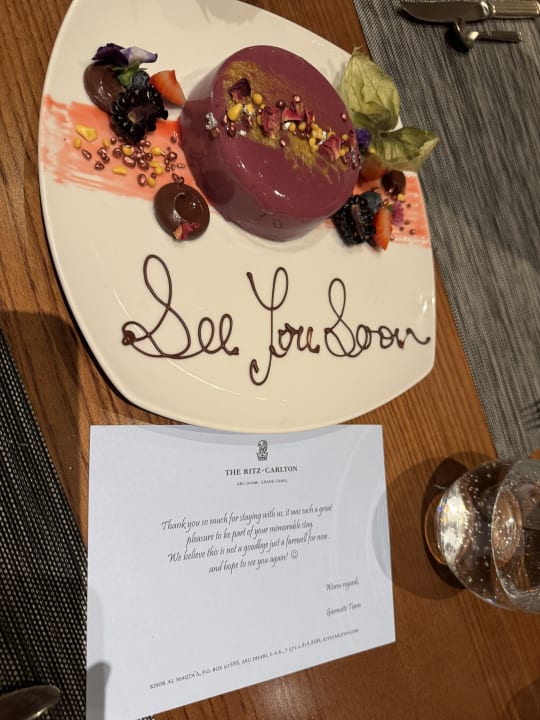 See You Soon
THE RITZ-CARLTON
ABU DHABI, GRAND CANAL
Thank you so much for staying with us, it was such a great
pleasure to be part of your memorable stay.
We believe this is not a goodbye just a farewell for now .
and hope to see you again! ☺
Warm regards,
Giornotte Team
KHOR AL MAQTA'A, P.O. BOX 91888, ABU DHABI, U.A.E., T 971.2.818.8888, RITZCARLTON.COM